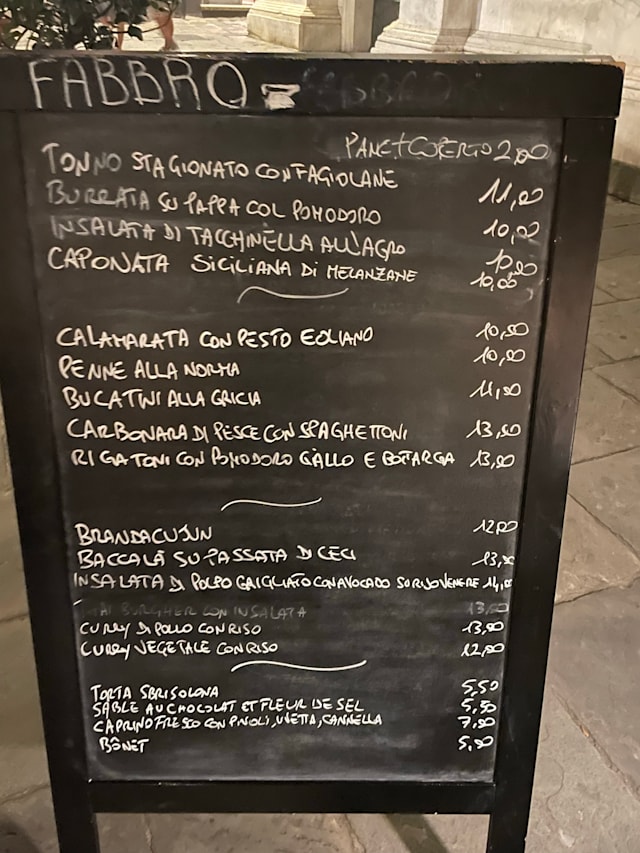 FABBRO
PANE+COPERTO 2,00
TONNO STAGIONATO CON FAGIOLANE 11,00
BURRATA SU PAPPA COL POMODORO 10,00
INSALATA DI TACCHINELLA ALL'AGRO 10,00
CAPONATA SICILIANA DI MELANZANE 10,00
CALAMARATA CON PESTO EOLIANO 10,50
PENNE ALLA NORMA 10,00
BUCATINI ALLA GRICIA 11,50
CARBONARA DI PESCE CON SPAGHETTONI 13,50
RIGATONI CON POMODORO GIALLO E BOTTARGA 13,50
BRANDACUJUN 12,00
BACCALÀ SU PASSATA DI CECI 13,50
INSALATA DI POLPO GRIGLIATO CON AVOCADO SU RISO VENERE 14,00
BURGHER CON INSALATA 13,00
CURRY DI POLLO CON RISO 13,00
CURRY VEGETALE CON RISO 12,00
TORTA SBRISOLONA 5,50
SABLE AU CHOCOLAT ET FLEUR DE SEL 5,50
CAPRINO FRESCO CON PINOLI, UVETTA, CANNELLA 7,00
BÔNET 5,00